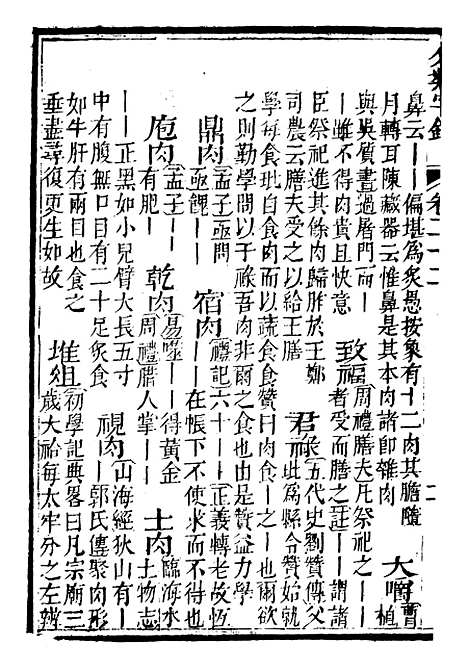 分類字錦 卷二十二 二
鼻云——偏堪為炙愚按象有十二肉其膽隨
月轉耳陳藏器云惟鼻是其本肉諸即雜肉
大嚼 曹植
與吳質書過屠門而——
——雖不得肉貴且快意
致福 周禮膳夫凡祭祀之——
——者受而膳之註——謂諸
臣祭祀進其餘肉歸胙於王鄭
司農云膳夫受之以給王膳
君祿 五代史劉贊傳父
玭為縣令贊始就
學每食玭自食肉而以蔬食食贊曰肉食—之—也爾欲
之則勤學問以干祿吾肉非爾之食也由是贊益力學
鼎肉 孟子亟問
亟餽——
宿肉 禮記六十——正義轉老故恆
——在帳下不使求而不得也
庖肉 孟子—
有肥—
乾肉 易噬——得黃金
周禮腊人掌——
土肉 臨海水
土物志
——正黑如小兒臂大長五寸
中有腹無口目有二十足炙食
視肉 山海經狄山有—
—郭氏傳聚肉形
如牛肝有兩目也食之
垂盡尋復更生如故
堆俎 初學記典畧曰凡宗廟三
歲大祫每太牢分之左辨